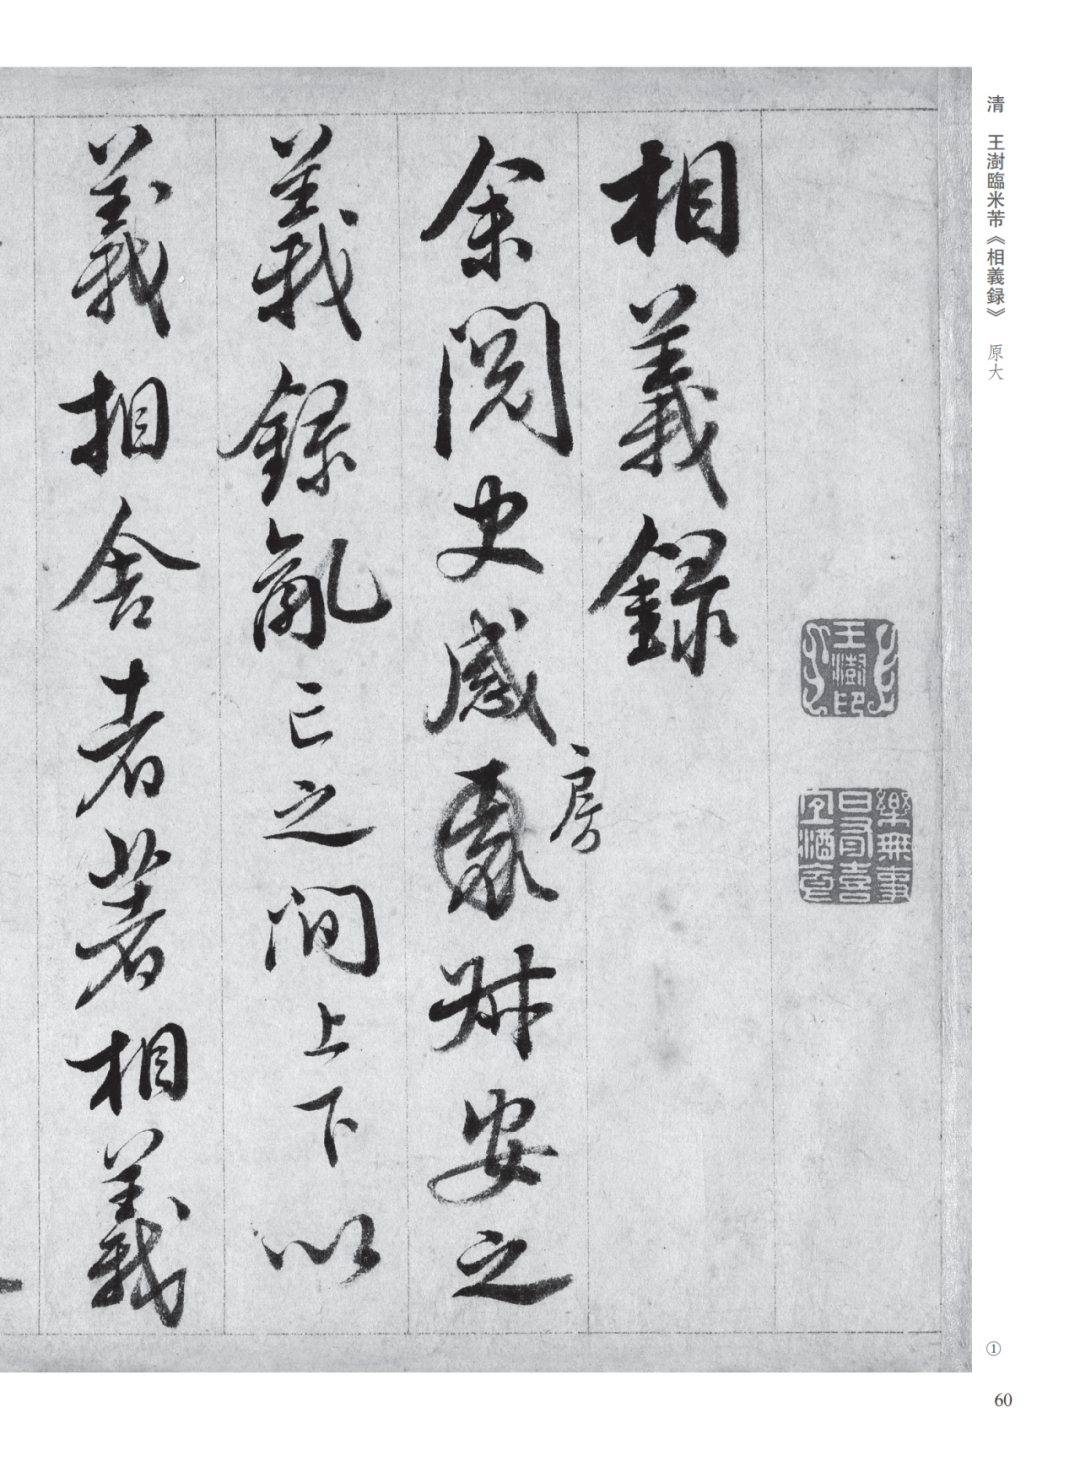 清 王澍臨米芾《相義録》 原大
王澍印
樂無事
日有喜
宜酒食
相義録
余閱史感房叔安之
義録亂亡之間上下以
義相舍者著相義
①
60